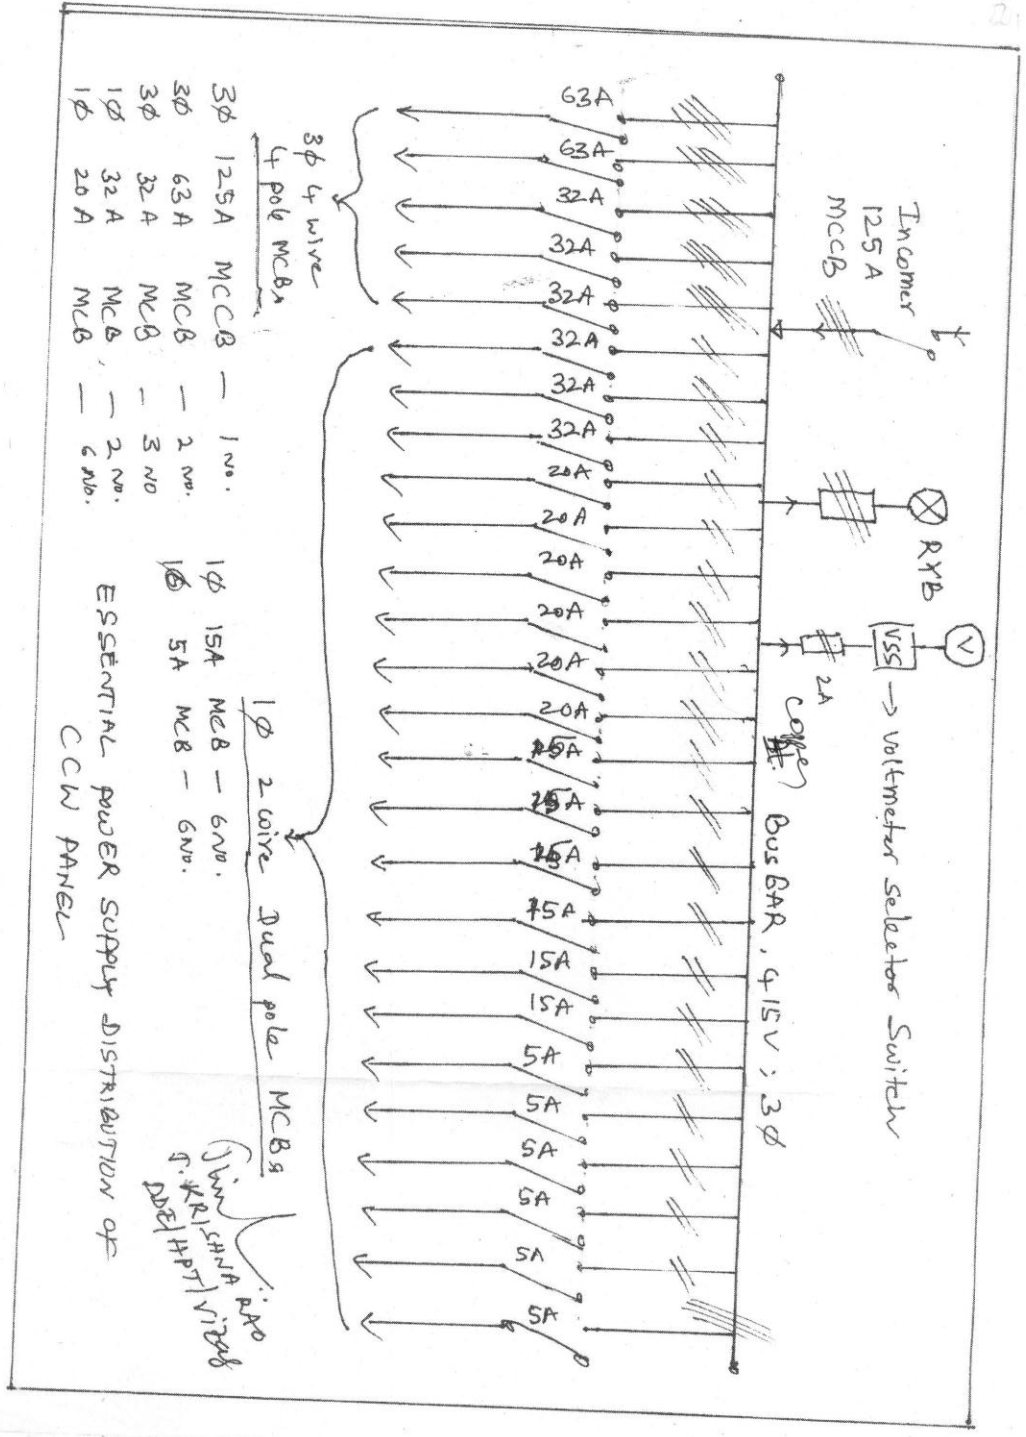 Incomer
125A
MCCB
RYB
2A
V
VSS → Voltmeter Selector Switch
Copper BUS BAR, 415V; 3Ø
63A
63A
32A
32A
32A
32A
32A
32A
20A
20A
20A
20A
20A
20A
15A
15A
15A
15A
15A
15A
5A
5A
5A
5A
5A
5A
3Ø 4 wire
4 pole MCBs
1Ø 2 wire Dual pole MCBs
3Ø 125A MCCB — 1 No.
3Ø 63A MCB — 2 No.
3Ø 32A MCB — 3 NO
1Ø 32A MCB — 2 No.
1Ø 20A MCB — 6 No.
1Ø 15A MCB — 6 No.
1Ø 5A MCB — 6 No.
ESSENTIAL POWER SUPPLY DISTRIBUTION OF
CCW PANEL
T. KRISHNA RAO
DDE/HPT/Vizag